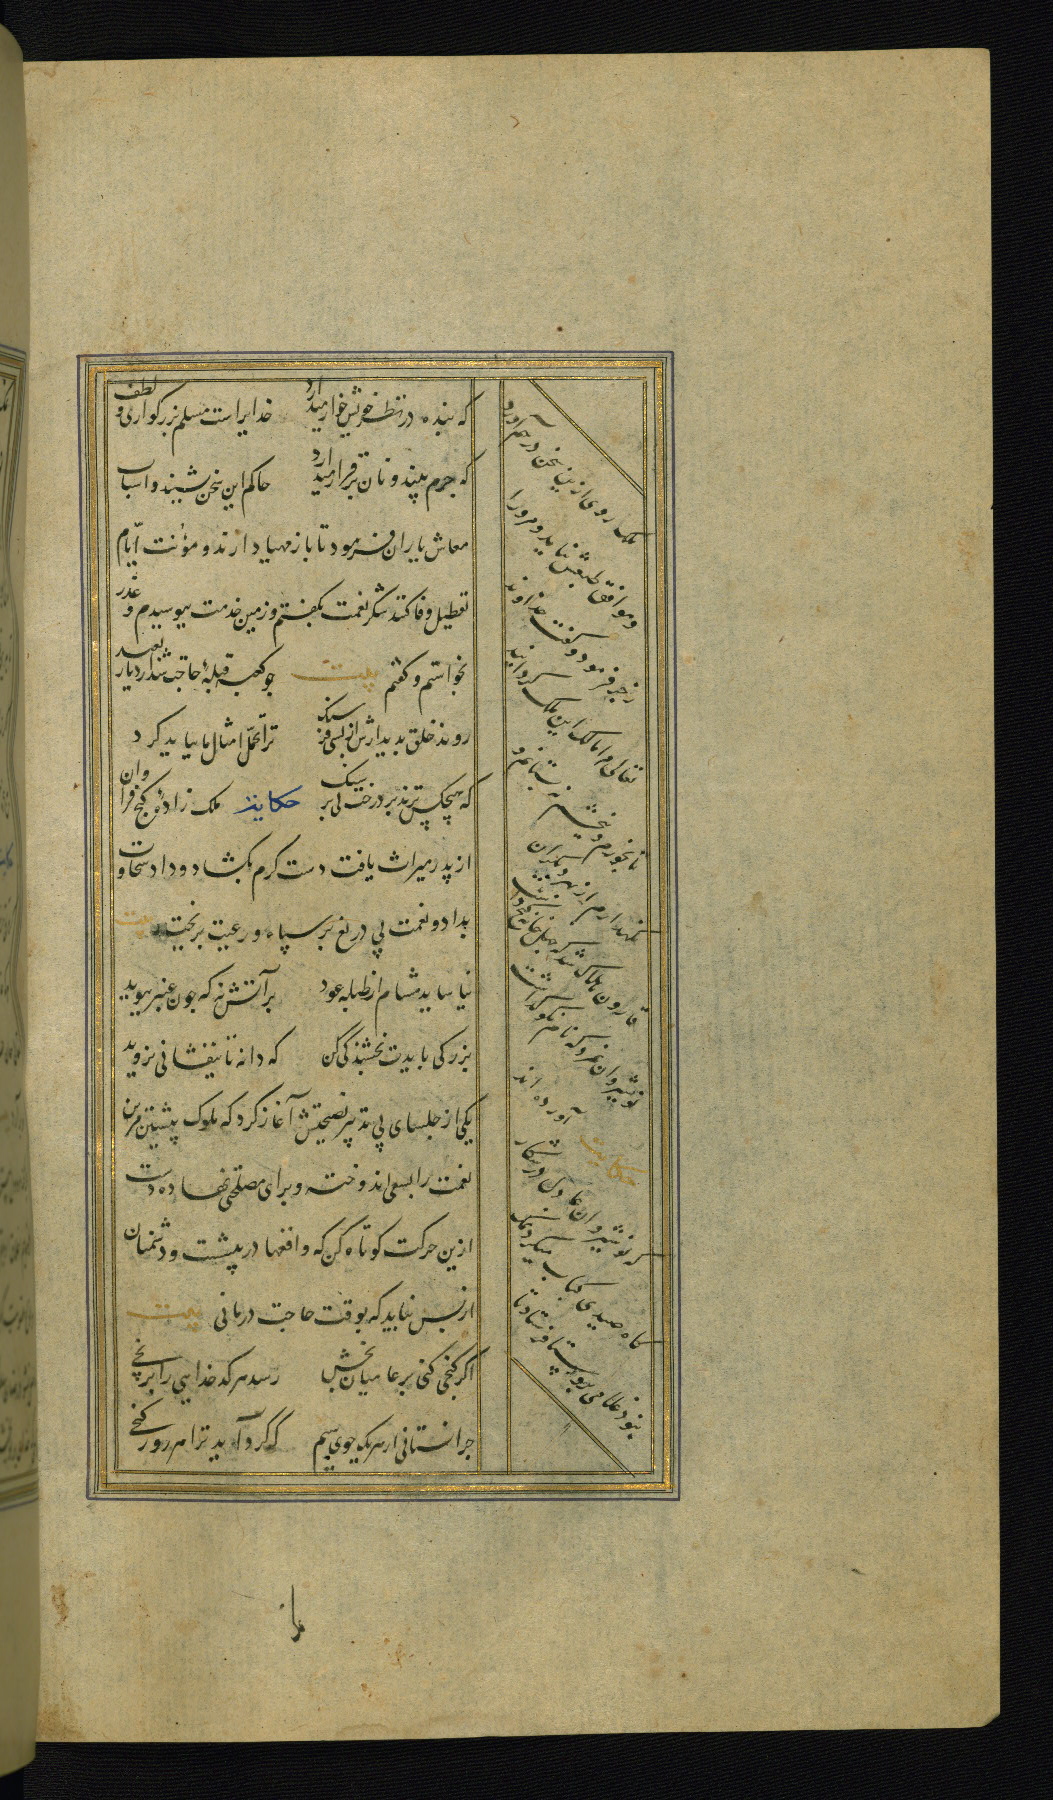 خدایراست مسلم بزرکواری و لطف
که بنده در نظر خویش خوار میدارد
حاکم این سخن شنید و اسباب
که جرم بیند و نان برقرار میدارد
معاش یاران فرمود تا باز مهیا دارند و مؤنت ایّام
تعطیل وفا کنند شکر نعمت بکفتم و زمین خدمت ببوسیدم و عذر
بخواستم و کفتم بیت جو کعبه قبلهٔ حاجت شد از دیار بعید
روند خلق بدیدارش از بسی فرسنک
ترا تحمّل امثال ما بباید کرد
که هیچکس نزند بر درخت بی بر سنک حکایت ملک زادهٔ کنج فراوان
از پدر میراث یافت دست کرم بکشاد و داد سخاوت
بداد و نعمت بی دریغ بر سپاه و رعیت بریخت بیت
نیاساید مشام از طبله عود
بر آتش نه که جون عنبر ببوید
بزرکی بایدت بخشندکی کن
که دانه تا نیفشانی نروید
یکی از جلسای بی تدبیر نصیحتش آغاز کرد که ملوک پیشین مر این
نعمت را بسعی اندوخته و برای مصلحتی نهاده دست
ازین حرکت کوتاه کن که واقعها در پیشت و دشمنان
از پس نباید که بوقت حاجت درمانی بیت
اکر کنجی کنی بر عامیان بخش
رسد هر کدخدایی را برنجی
جرا نستانی از هر یک جوی سیم
که کرد آید ترا هر روز کنجی
ملک روی ازین سخن در هم آورد
و موافق طبعش نیامد و مر او را
زجر فرمود و کفت خداوند
تعالی مرا مالک این ملک کردانید
تا بخورم و ببخشم نه پاسبانم
نکهدارم
قارون هلاک شد که جهل خانه کنج داشت
نوشیروان نمرد که نام نکو کذاشت
حکایت آورده اند
که نوشیروان عادل در شکار
کاه صیدی کباب میکردند نمک
نبود غلامی بروستا فرستاد تا